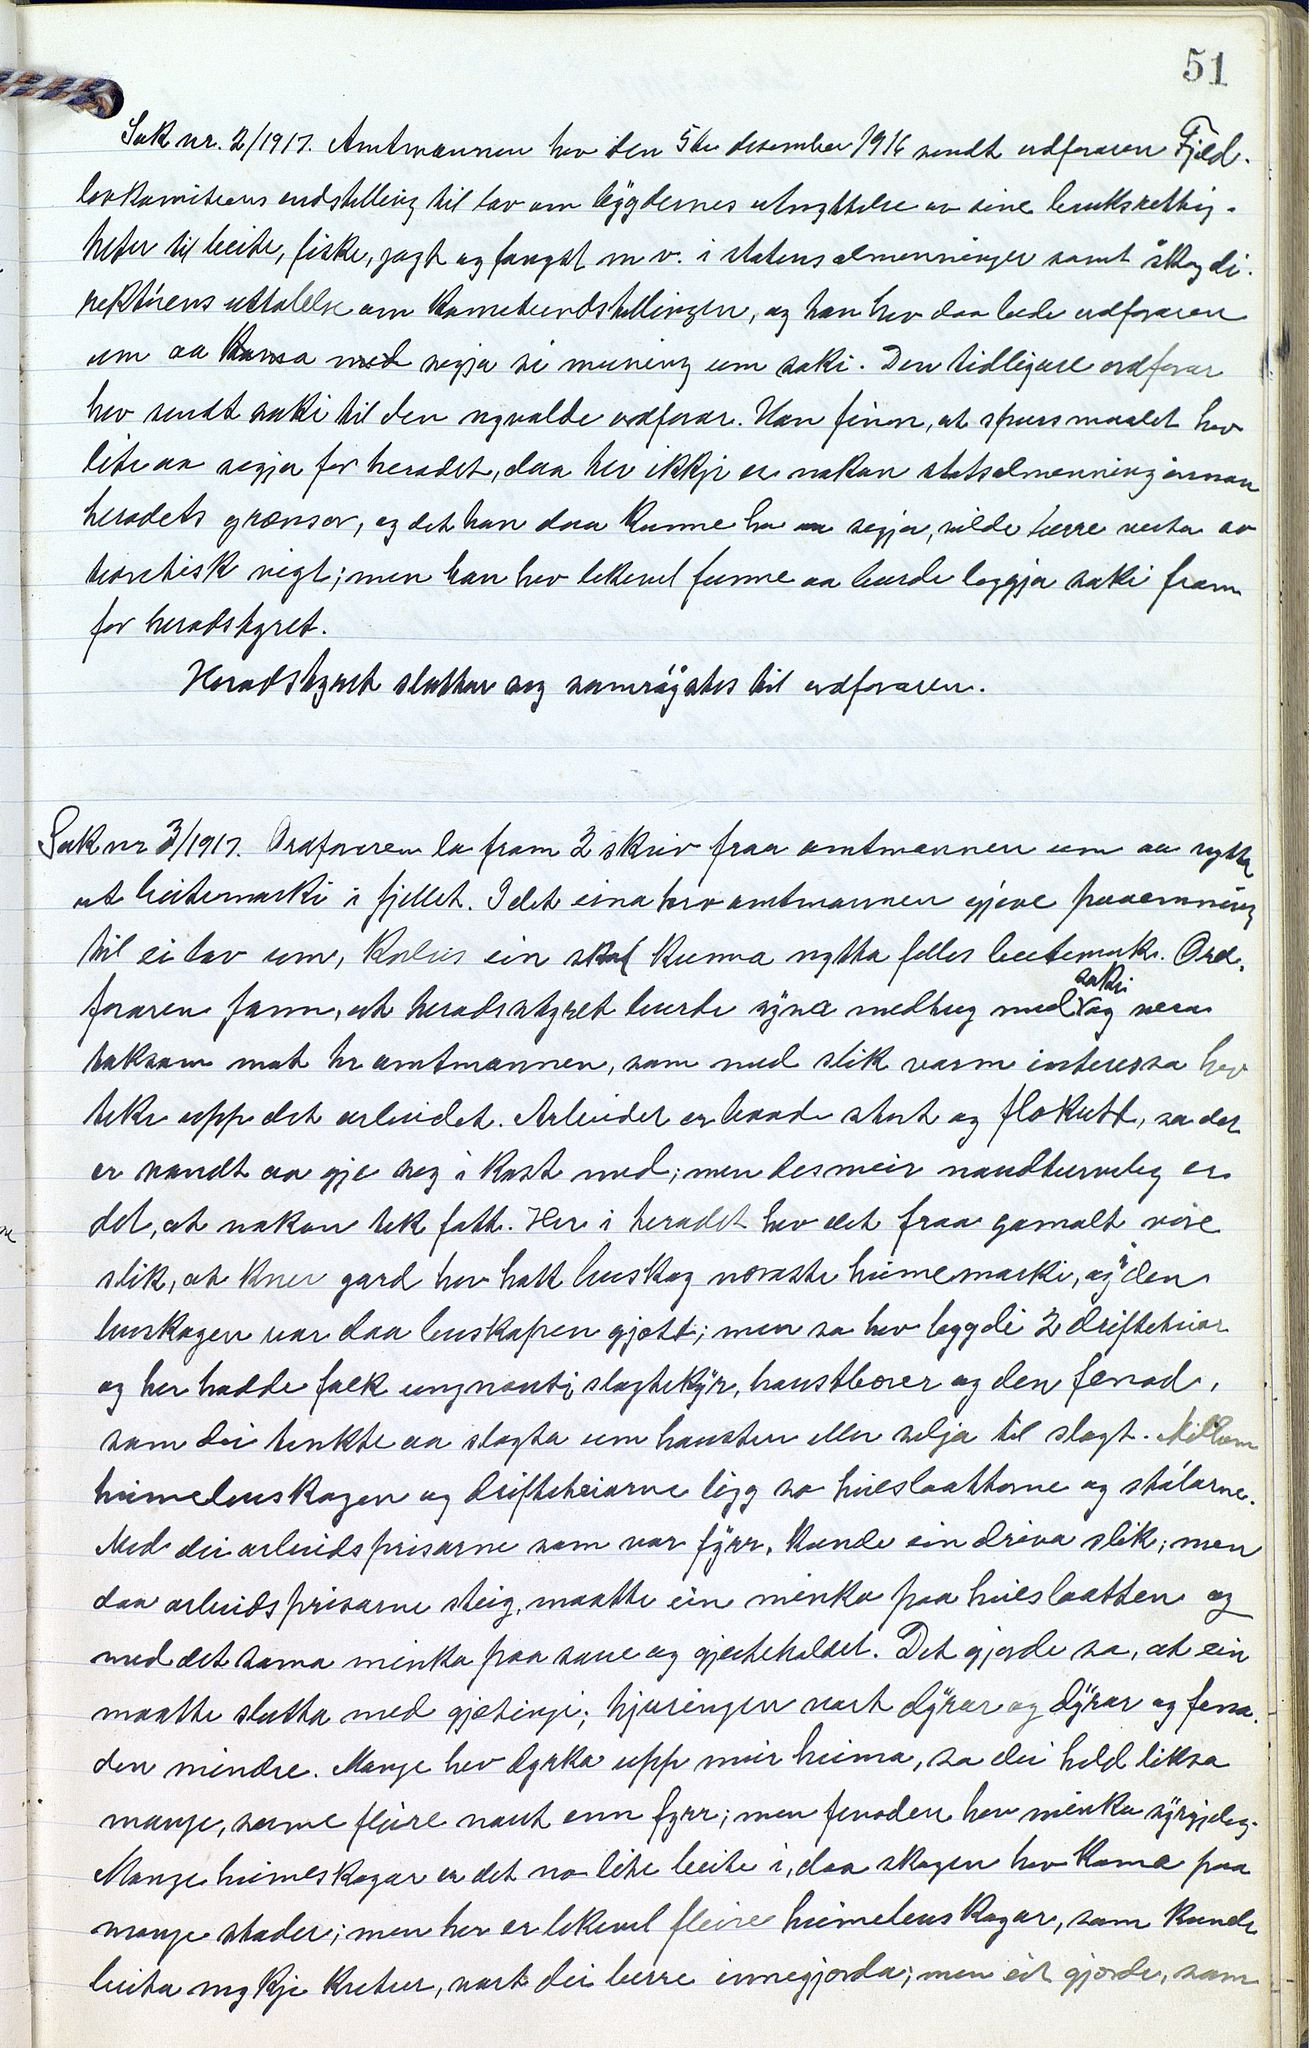 51
Sak nr. 2/1917. Amtmannen hev den 5te desember 1916 sendt ordføraren Fjeld-
lovkomiteens indstilling til lov om bygdernes utnyttelse av sine bruksrettig-
heter til beite, fiske, jagt og fangst m v. i statens almenninger samt skogdi-
rektørens uttalelse om komiteindstillingen, og han hev daa bede ordføraren
um aa koma med segja si meining um saki. Den tidligare ordførar
hev sendt saki til den nyvalde ordførar. Han finn, at spursmaalet hev
lite aa segja for heradet, daa her ikkje er nokon statsalmenning innan
heradets grænser, og det han daa kunne ha aa segja, vilde berre verta av
teoretisk vigt; men han hev likevel funne aa burde leggja saki fram
for heradstyret.
Heradstyret sluttar seg samrøystes til ordføraren.
Sak nr 3/1917. Ordføraren la fram 2 skriv fraa amtmannen um aa nytta
ut beitemarki i fjellet. I det eina hev amtmannen gjeve paaemning
til ei lov um, korleis ein skal kunna nytta felles beitemark. Ord-
føraren fann, at heradstyret burde syna medhug med saki og vera
taksam mot hr amtmannen, som med slik varm interessa hev
teke upp det arbeidet. Arbeidet er baade stort og flokutt, so det
er vandt aa gje seg i kast med; men desmeir naudturveleg er
det, at nokon tek fatt. Her i heradet hev det fraa gamalt vore
slik, at kver gard hev hatt buskog næraste heimemarki, og i den
buskogen var daa buskapen gjætt; men so hev bygdi 2 drifteheiar
og her hadde folk ungnaut, slagtekyr, haustberer og den fenad,
som dei tenkte aa slagta um hausten eller selja til slagt. Millom
heimebuskogen og drifteheiarne ligg so heieslaattorne og stølarne.
Med dei arbeidsprisarne som var fyrr, kunde ein driva slik; men
daa arbeidsprisarne steig, maatte ein minka paa heieslaatten og
med det sama minka paa saue og gjeiteholdet. Det gjorde so, at ein
maatte slutta med gjætingi; hjuringen vart dyrar og dyrar og fena-
den mindre. Mange hev dyrka upp meir heima, so dei held likso
mange, sume fleire naut enn fyrr; men fenaden hev minka syrgjeleg.
Mange heimeskogar er det no lite beite i, daa skogen hev kome paa
mange stader; men her er likevel fleire heimebuskogar, som kunde
beita mykje kretur, vart dei berre innegjorda; men eit gjerde, som